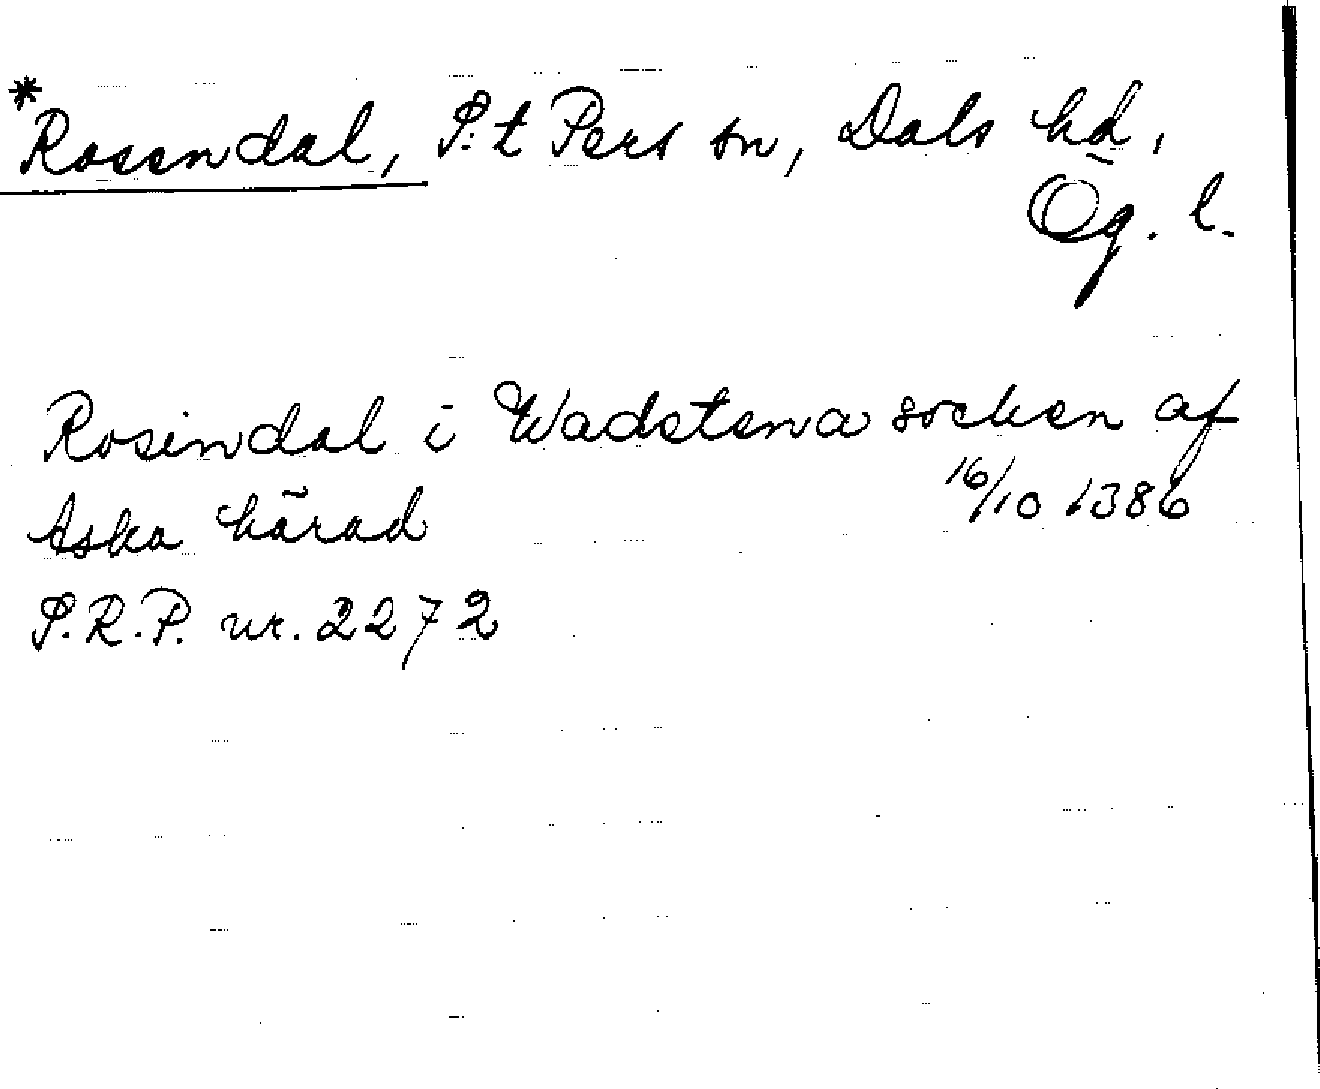 *Rosendal, S:t Pers sn, Dals hd,
Ög. l.
Rosindal i Wadstena socken af
Aska härad 16/10 1386
S.R.P. nr. 2272